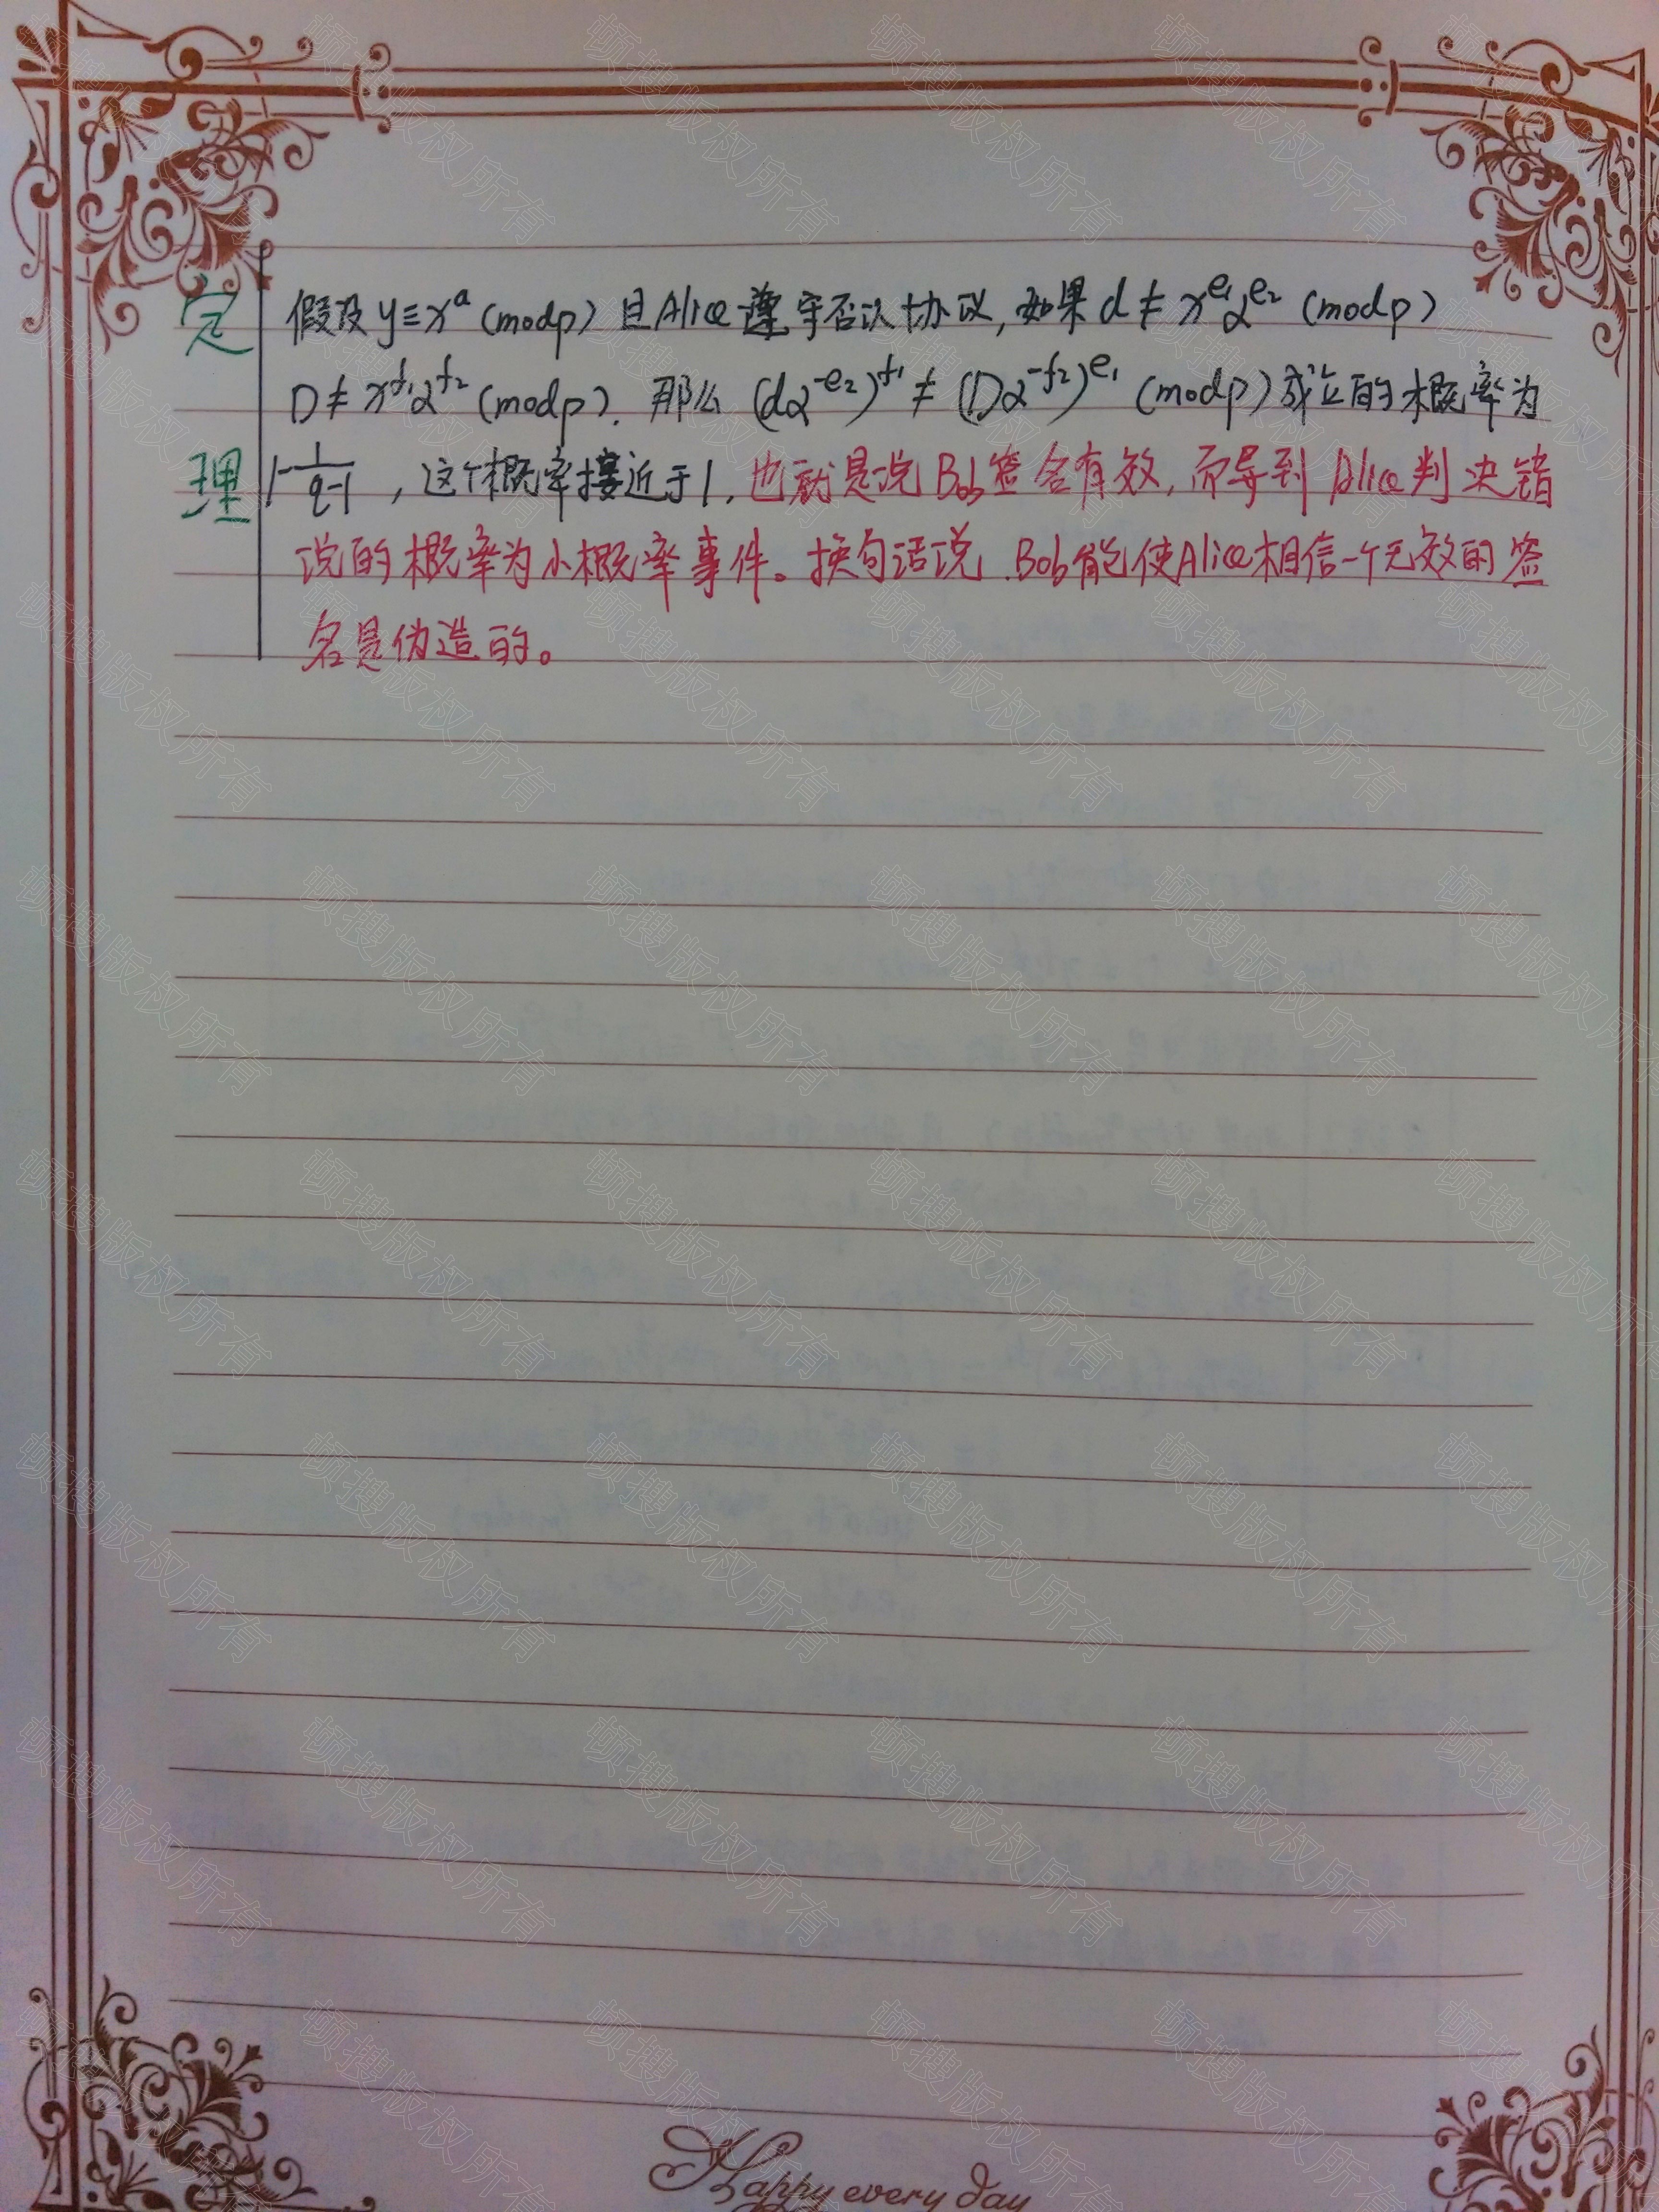 定 假设 y≡x^a (modp) 且Alice遵守否认协议, 如果 d≠x^e₁α^e₂ (modp)
D≠x^f₁α^f₂ (modp). 那么 (dα^-e₂)^f₁ ≠ (Dα^-f₂)^e₁ (modp) 成立的概率为
理 1-1/(q-1) , 这个概率接近于1. 也就是说Bob签名有效, 而导到 Alice判决错
说的概率为小概率事件。换句话说.Bob能使Alice相信一个无效的签
名是伪造的。
Happy every day
硕搜版权所有